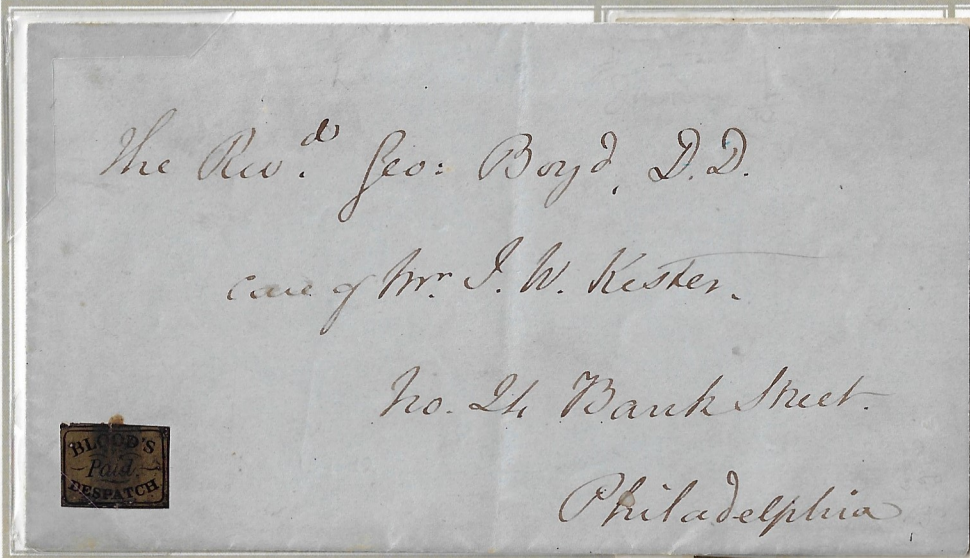 The Revd. Geo: Boyd, D.D.
care of Mr. J. W. Kester.
No. 24 Bank Street.
Philadelphia
BLOOD'S
Paid
DESPATCH